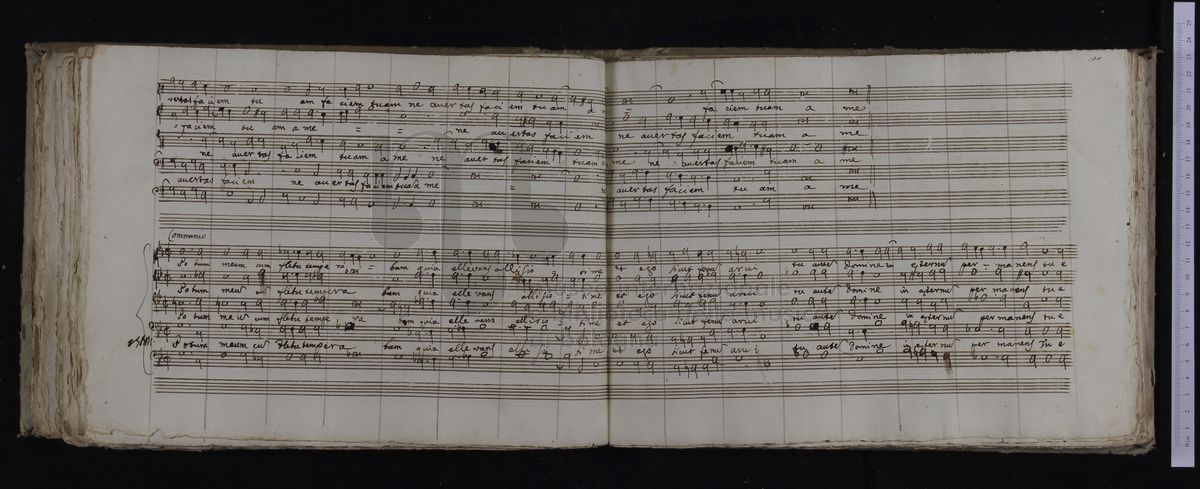 100
faciem tu am fa ciem tuam ne auertas faci em tuam a fa ciem tuam a me
faciem tu am a me = = ne auertas faci em ne auertas faciem tuam a me
ne auer tas fa ciem tuam a me ne auer tas faciem tuam a me ne auertas faciem tuam a me
auertas faciem ne auertas faciem tuam a me = auertas faciem tu am a me
Communio
Potum meum cum fletu tempera = bam quia elleuans allisis ti me et ego sicut fenum arui tu autem domine in eternum per = manens tu e
Potum meum cum fletu tempera bam quia elleuans allisis = ti me et ego sicut fenum arui tu autem domine in eternum permanens tu e
Potum meum cum fletu tempe ra bam quia elleuans allisis = ti me et ego sicut fenum arui tu autem domine in eternum permanens tu e
Potum meum cum fletu tempera bam quia elleuans ti me et ego sicut fenum arui tu autem domine in eternum permanens tu e